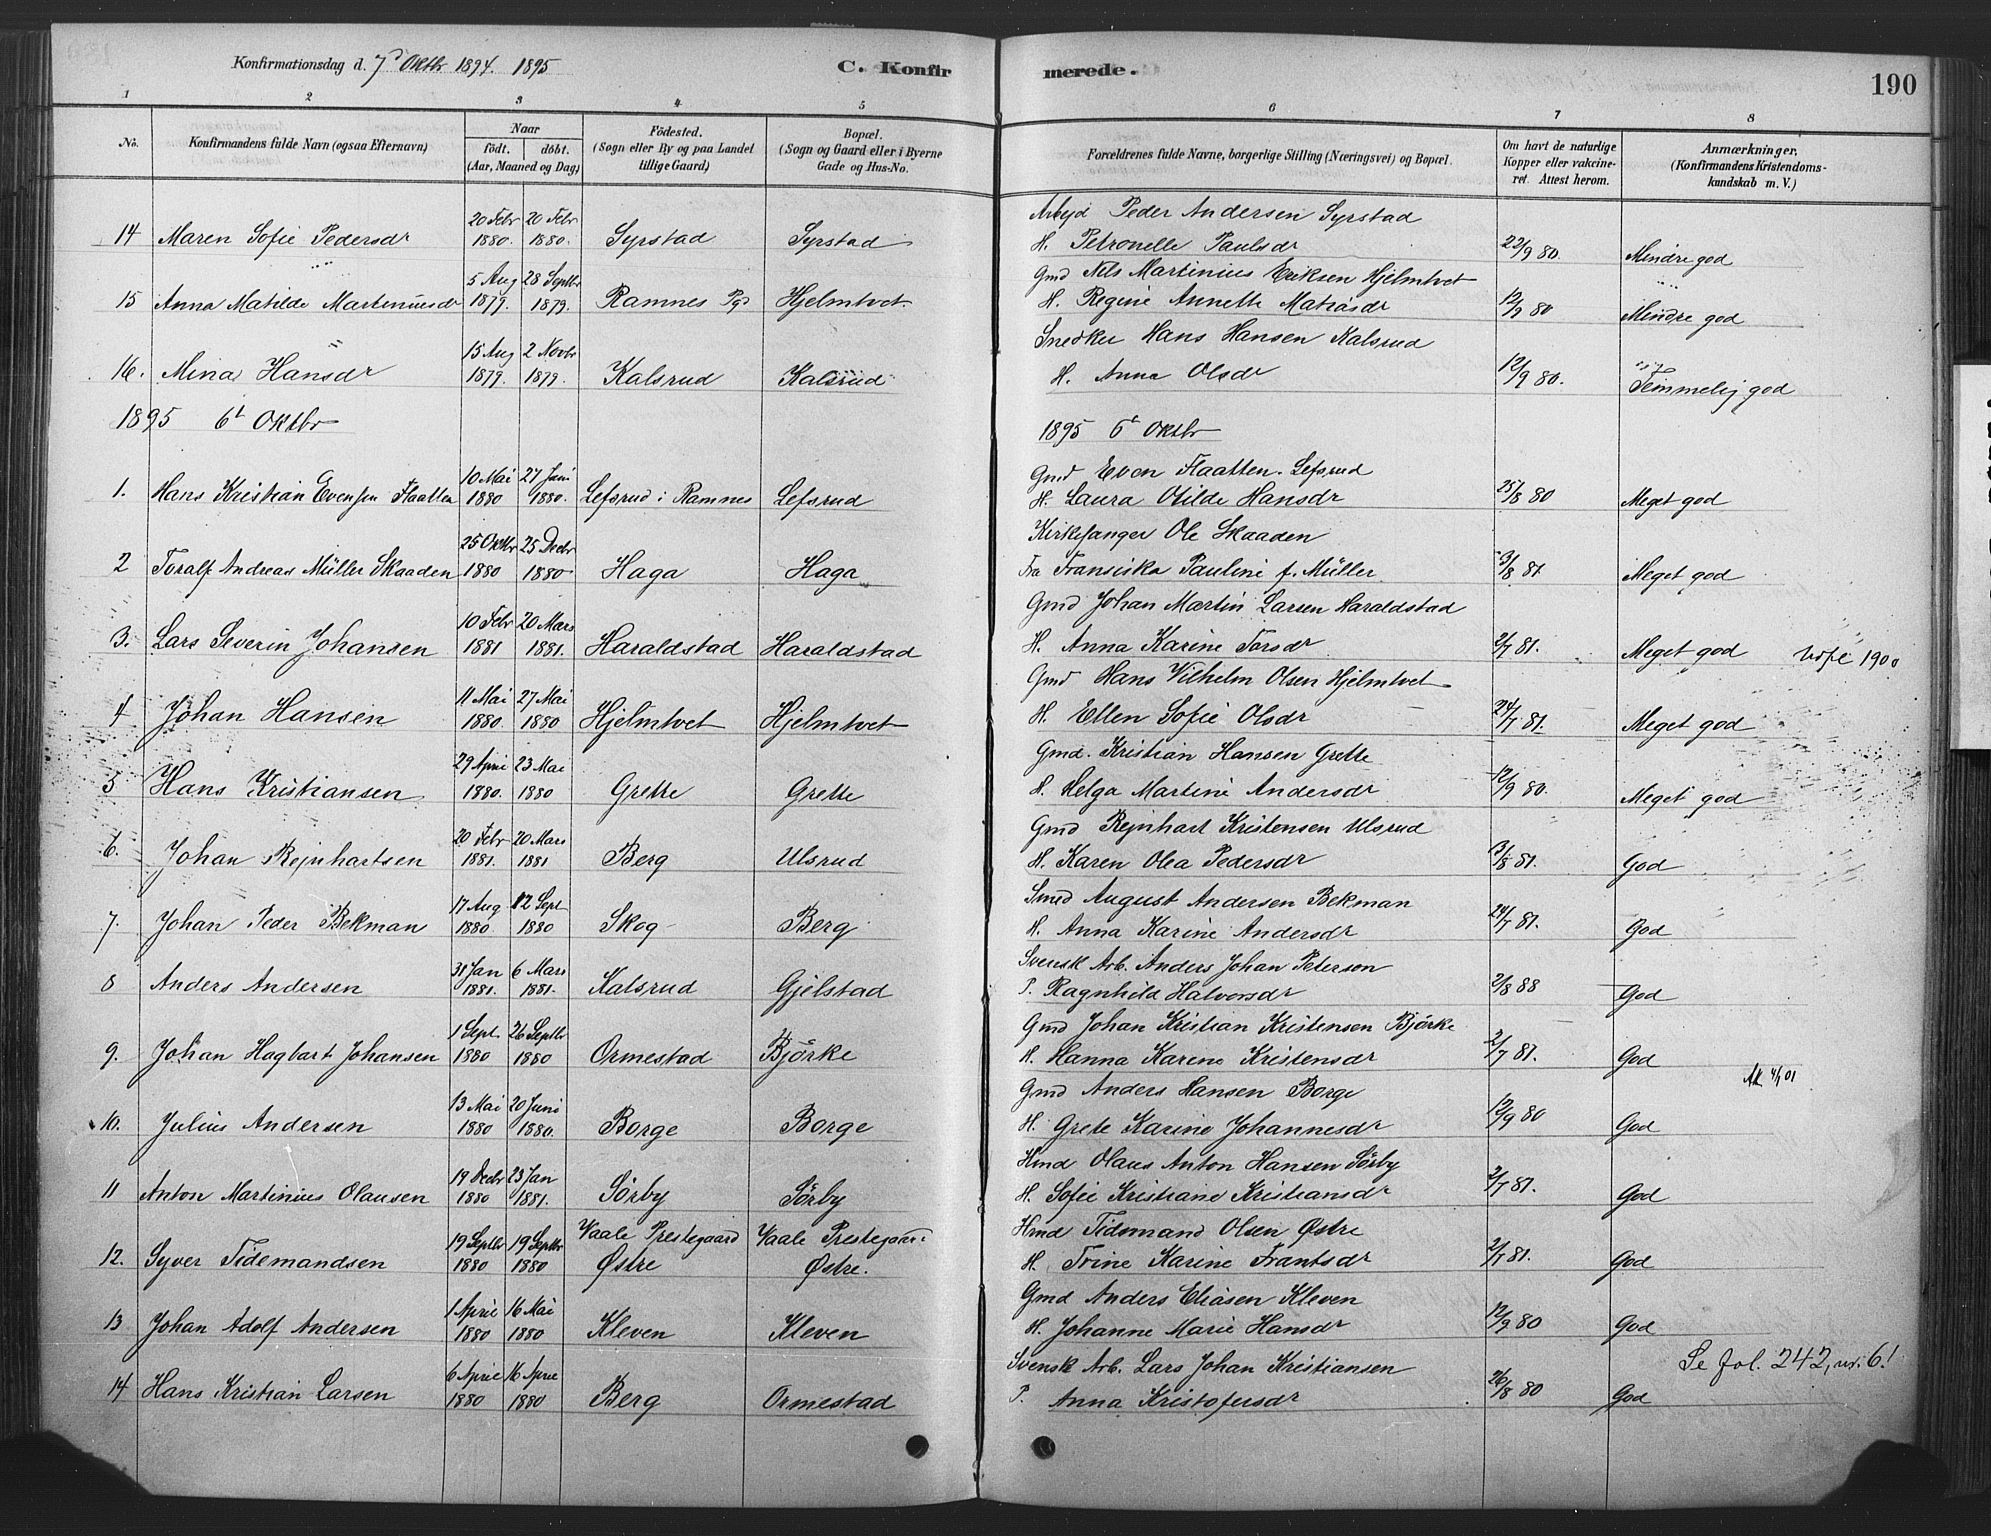 Konfirmationsdag d. 7d Oktbr 1894. 1895
C. Konfirmerede.
190
1 2 3 4 5 6 7 8
No.
Konfirmandens fulde Navn (ogsaa Efternavn)
Naar
født. døbt.
(Aar, Maaned og Dag)
Fødested.
(Sogn eller By og paa Landet tillige Gaard)
Bopæl.
(Sogn og Gaard eller i Byerne Gade og Hus-No.
Forældrenes fulde Navne, borgerlige Stilling (Næringsvei) og Bopæl.
Om havt de naturlige Kopper eller vakcineret. Attest herom.
Anmærkninger.
(Konfirmandens Kristendomskundskab m. V.)
14 Maren Sofie Pedersdr 20 Febr 1880. 20 Febr 1880. Syrstad Syrstad Arbejd Peder Andersen Syrstad
H. Petronelle Paulsdr 22/9 80. Mindre god
15 Anna Matilde Martiniusdr 5 Aug 1879. 28 Septbr 1879. Ramnes Pgd Hjelmtvet Gmd Nils Martinius Eriksen Hjelmtvet
H. Regine Annette Matiasdr 12/9 80 Mindre god
16. Mina Hansdr 15 Aug 1879. 2 Novbr 1879. Kalsrud Kalsrud Snedker Hans Hansen Kalsrud
H. Anna Olsdr 12/9 80. Temmelig god
1895 6t Oktbr 1895 6t Oktbr
1. Hans Kristian Evensen Flaatten 10 Mai 1880 27 Juni 1880. Lefsrud i Ramnes Lefsrud Gmd Even Flaatten. Lefsrud
H. Laura Otilde Hansdr 25/8 80 Meget god
2 Toralf Andreas Müller Skaaden 25 Oktbr 1880 25 Decbr 1880 Haga Haga Kirkesanger Ole Skaaden
Fra Fransiska Pauline f. Müller 3/8 81 Meget god
3. Lars Severin Johansen 10 Febr 1881 20 Mars 1881. Haraldstad Haraldstad Gmd Johan Martin Larsen Haraldstad
H. Anna Karine Torsdr 2/7 81. Meget god 1900
4 Johan Hansen 11 Mai 1880. 27 Mai 1880 Hjelmtvet Hjelmtvet Gmd Hans Vilhelm Olsen Hjelmtvet
H. Ellen Sofie Olsdr 24/7 81. Meget god
5 Hans Kristiansen 29 April 1880. 23 Mai 1880 Grette Grette Gmd. Kristian Hansen Grette
H. Helga Martine Andersdr 12/9 80. Meget god
6. Johan Rejnhartsen 20 Febr 1881. 20 Mars 1881 Berg Ulsrud Gmd Rejnhart Kristensen Ulsrud
H. Karen Olea Pedersdr 3/8 81. God
7. Johan Peder Bekman 17 Aug 1880. 12 Sept 1880 Skog Berg Smed August Andersen Bekman
H. Anna Karine Andersdr 24/7 81. God
8 Anders Andersen 31 Jan 1881. 6 Mars 1881. Kalsrud Gjelstad Svensk Arb. Anders Johan Peterson
P. Ragnhild Halvorsdr 2/8 88 God
9. Johan Hagbart Johansen 1 Sept 1880 26 Septbr 1880 Ormestad Bjørke Gmd Johan Kristian Kristensen Bjørke
H. Hanna Karine Kristensdr 2/7 81. God
Ak 4/1 01
10. Julius Andersen 13 Mai 1880 20 Juni 1880. Borge Borge Gmd Anders Hansen Borge
H. Grete Karine Johannesdr 12/9 80 God
11 Anton Martinius Olausen 19 Decbr 1880 23 Jan 1881. Sørby Sørby Hmd Olaus Anton Hansen Sørby
H. Sofie Kristiane Kristiansdr 2/7 81. God
12. Syver Tidemandsen 19 Septbr 1880 19 Septbr 1880 Vaale Prestegaard Østre Vaale Prestegaar: Østre. Hmd Tidemand Olsen Østre
H. Trine Karine Frantsdr 2/7 81. God
13 Johan Adolf Andersen 1 April 1880 16 Mai 1880 Kleven Kleven Gmd Anders Eliasen Kleven
H. Johanne Marie Hansdr 12/9 80 God
14 Hans Kristian Larsen 6 April 1880 16 April 1880 Berg Ormestad Svensk Arb. Lars Johan Kristiansen
P. Anna Kristofersdr 26/8 80 God Se fol. 242, nr. 6!